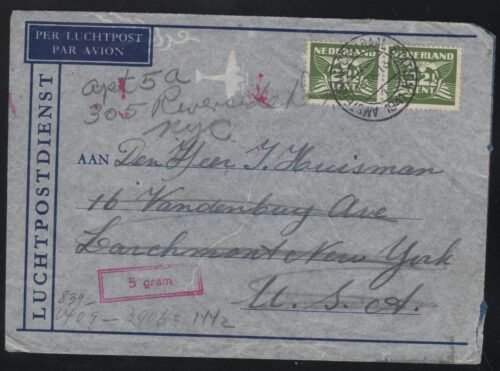 PER LUCHTPOST
PAR AVION
LUCHTPOSTDIENST
NEDERLAND
2½
CENT
NEDERLAND
2½
CENT
apt 5a
305 Riverside Dr
NYC
AAN Den Heer J. Huisman
16 Vandenbay Ave
Larchmont New York
U. S. A.
5 gram
839-